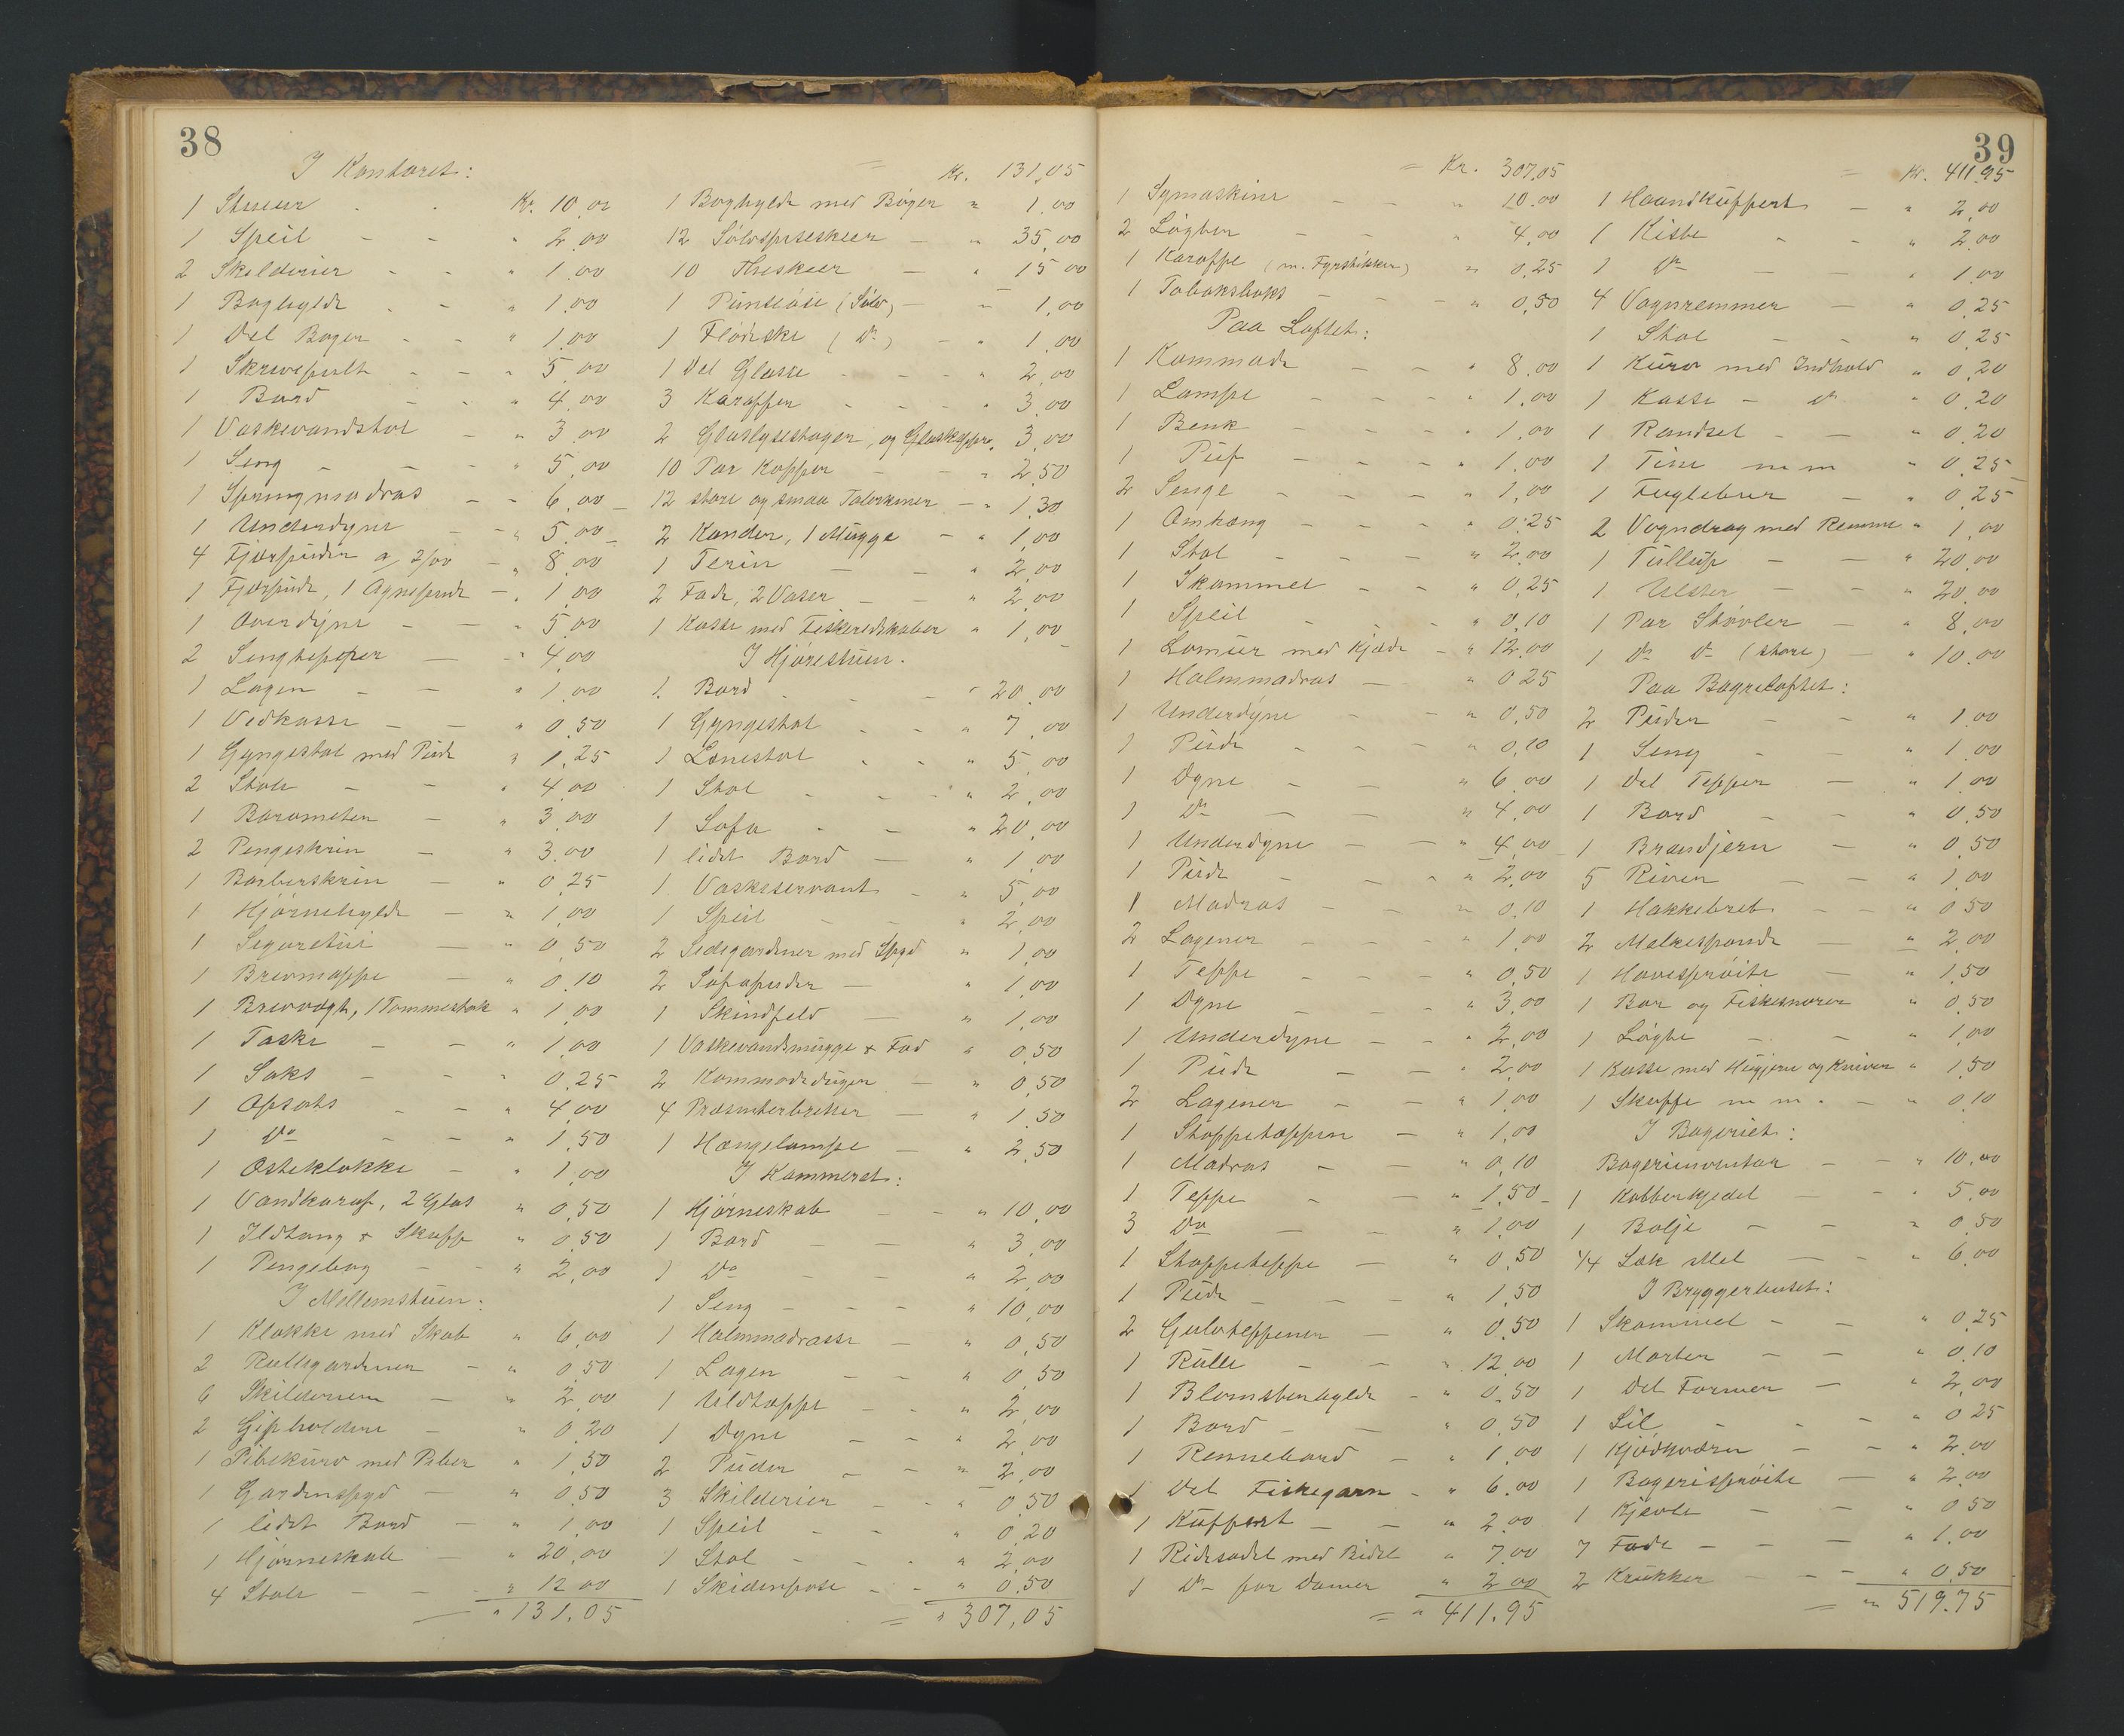 38
I Kontoret:
1 Stueur - - Kr. 10,00
1 Speil - - " 2,00
2 Skilderier - - " 1,00
1 Boghylde - " 1,00
1 Del Bøger - - " 1,00
1 Skrivepult - - " 5,00
1 Bord - - " 4,00
1 Vaskevandstol - " 3,00
1 Seng - - - " 5,00
1 Springmadras - - 6,00
1 Underdyne - - " 5,00
4 Fjærpuder a 2/00 - " 8,00
1 Fjærpude, 1 Agnepude - " 1,00
1 Overdyne - - " 5,00
2 Sengtepper - " 4,00
1 Lagen - - " 1,00
1 Vedkasse - - " 0,50
1 Gyngestol med Pude " 1,25
2 Stole - - " 4,00
1 Barometer - " 3,00
2 Pengeskrin - " 3,00
1 Barberskrin - " 0,25
1 Hjørnehylde - " 1,00
1 Sigaretui - " 0,50
1 Brevmappe - " 0,10
1 Brevvægt, 1 Tommestok " 1,00
1 Taske - - " 1,00
1 Saks - - " 0,25
1 Opsats - - " 4,00
1 Do - - " 1,50
1 Osteklokke - " 1,00
1 Vandkaraf, 2 Glas " 0,50
1 Ildtang & Skuffe " 0,50
1 Pengebog - - " 2,00
I Mellemstuen:
1 Klokke med Skab " 6,00
2 Rullegardiner - " 0,50
6 Skilderier - " 2,00
2 Gipsholdere - " 0,20
1 Pibekurv med Piber " 1,50
1 Gardinspyd - " 0,50
1 lidet Bord - " 1,00
1 Hjørneskab - " 20,00
4 Stole - - " 12,00
" 131,05
= Kr. 131,05
1 Boghylde med Bøger " 1,00
12 Sølvspiseskeer - " 35,00
10 Theskeer - " 15,00
1 Punseøse (Sølv) - " 1,00
1 Flødeske (Do) - " 1,00
1 Del Glasse - - " 2,00
3 Karafper - - " 3,00
2 Glaslysestager, og Glaskopper " 3,00
10 Par Kopper - - " 2,50
12 store og smaa Talerkener - " 1,30
2 Kander, 1 Mugge - " 1,00
1 Terin - - " 2,00
2 Fade, 2 Vaser - - " 2,00
1 Kasse med Fiskeredskaber " 1,00
I Hjørestuen.
1 Bord - - " 20,00
1 Gyngestol - - " 7,00
1 Lænestol - - " 5,00
1 Stol - - " 2,00
1 Sofa - - " 20,00
1 lidet Bord - " 1,00
1 Vaskeservant - " 5,00
1 Speil - - " 2,00
2 Sedsgardiner med Spyd " 1,00
2 Sofapuder - " 1,00
1 Skindfeld - " 1,00
1 Vaskevandsmugge & Fad " 0,50
2 Kommodeduger - " 0,50
4 Præsenterbretter - " 1,50
1 Hængelampe - " 2,50
I Kammeret:
1 Hjørneskab - - " 10,00
1 Bord - - " 3,00
1 Do - - " 2,00
1 Seng - - - " 10,00
1 Halmmadrasse - " 0,50
1 Lagen - - " 0,50
1 Uldtæppe - - " 2,00
1 Dyne - - " 2,00
2 Puder - - " 2,00
3 Skilderier - - " 0,50
1 Speil - - " 0,20
1 Stol - - " 2,00
1 Skidenpose - - " 0,50
= " 307,05
39
= Kr. 307,05
1 Symaskine - - " 10,00
2 Løgter - - " 4,00
1 Karaffe (m. Fyrstikker) " 0,25
1 Tobaksboks - - - " 0,50
Paa Loftet:
1 Kommode - - " 8,00
1 Lampe - - - " 1,00
1 Benk - - - " 1,00
1 Puf - - - " 1,00
2 Senge - - - " 1,00
1 Omhæng - - - " 0,25
1 Stol - - - " 2,00
1 Skammel - - " 0,25
1 Speil - - - " 0,10
1 Lomeur med Kjæde - " 12,00
1 Halmmadras - " 0,25
1 Underdyne - - " 0,50
1 Pude - - - " 0,10
1 Dyne - - " 6,00
1 Do - - " 4,00
1 Underdyne - - " 4,00
1 Pude - - - " 2,00
1 Madras - - - " 0,10
2 Lagener - - - " 1,00
1 Teppe - - - " 0,50
1 Dyne - - - " 3,00
1 Underdyne - - " 2,00
1 Pude - - " 2,00
2 Lagener - - " 1,00
1 Stoppetæppen - " 1,00
1 Madras - - " 0,10
1 Teppe - - " 1,50
3 Do - - " 1,00
1 Stoppeteppe - " 0,50
1 Pude - - - " 1,50
2 Gulvteppener - " 0,50
1 Rulle - - " 12,00
1 Blomsterhylde - " 0,50
1 Bord - - " 0,50
1 Rennebord - " 1,00
1 Del Fiskegarn - " 6,00
1 Kuffert - - " 2,00
1 Ridesadel med Bidel " 7,00
1 Do for Damer " 2,00
= " 411,95
= Kr. 411,95
1 Haandkuffert - " 2,00
1 Kiste - - " 2,00
1 Do - - " 1,00
4 Vognremmer - " 0,25
1 Stol - - " 0,25
1 Kurv med Indhold " 0,20
1 Kasse - do " 0,20
1 Randsel - - " 0,20
1 Tine m m " 0,25
1 Fuglebur - " 0,25
2 Vogndrag med Remme " 1,00
1 Tullup - - " 20,00
1 Ulster - - " 20,00
1 Par Støvler - " 8,00
1 Do Do (store) - " 10,00
Paa Bagreloftet:
2 Puder - - " 1,00
1 Seng - - " 1,00
1 Del Tepper - " 1,00
1 Bord - - " 0,50
1 Brændjern - " 0,50
5 River - - " 1,00
1 Hakkebret - - " 0,50
2 Melkespande - " 2,00
1 Havesprøite - " 1,50
1 Bor og Fiskesnører " 0,50
1 Løgte - - " 1,00
1 Kasse med Hugjern og Kniver " 1,50
1 Skuffe m m. - " 0,10
I Bageriet:
Bageriinventar - - " 10,00
1 Kobberkjedel - - " 5,00
1 Balje - - " 0,50
1/4 Sæk Mel - - " 6,00
I Bryggerhuset:
1 Skammel - " 0,25
1 Morter - - " 0,10
1 Del Former - " 2,00
1 Sil - - - " 0,25
1 Kjødkværn - - " 2,00
1 Bagerisprøite - " 2,00
1 Kjevle - - " 0,50
7 Fade - - - " 1,00
2 Krukker - - - " 0,50
= " 519,75